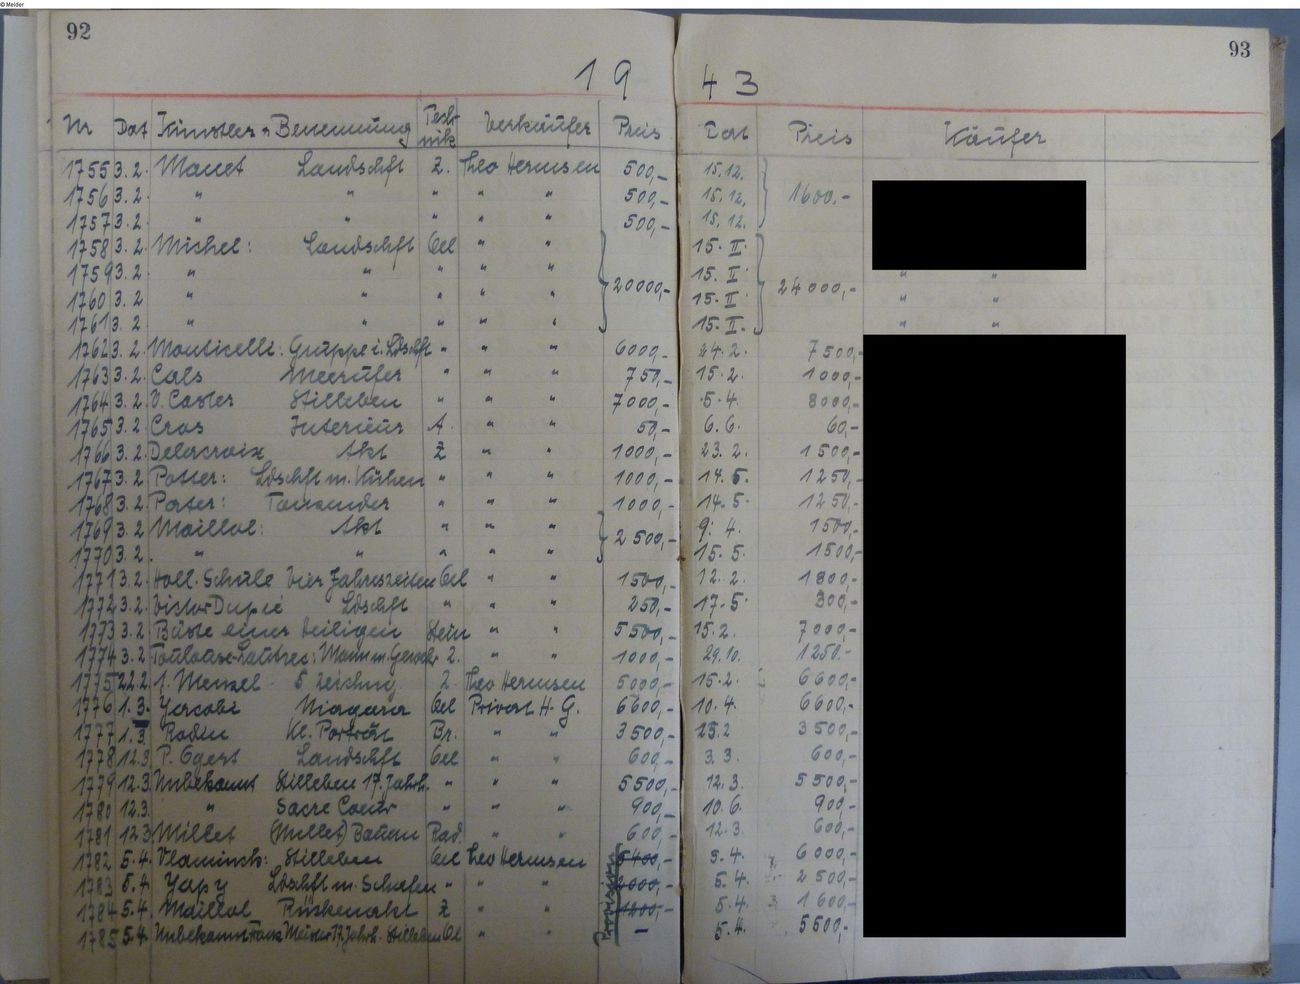 © Melder
92
93
19 43
Nr Dat Künstler u. Benennung Technik Verkäufer Preis Dat Preis Käufer
1755 3.2. Manet Landschft Z. Theo Hermsen 500,- 15.12.
1756 3.2. " " " " " 500,- 15.12. 1600.-
1757 3.2. " " " " " 500,- 15.12.
1758 3.2. Michel: Landschft Oel " " 15. II.
1759 3.2. " " " " " 15. II " "
1760 3.2 " " " " " 20000,- 15. II 24000,- " "
1761 3.2 " " " " " 15. II. " "
1762 3.2. Monticelli: Gruppe i. Ldschft " " " 6000,- 24.2. 7500,-
1763 3.2. Cals Meerufer " " " 750,- 15.2. 1000,-
1764 3.2 V. Caster Stilleben " " " 7000,- 5.4. 8000,-
1765 3.2 Cros Interieur A. " " 50,- 6.6. 60,-
1766 3.2. Delacroix Akt Z " " 1000,- 23.2. 1500,-
1767 3.2 Potter: Ldschft m. Kühen " " " 1000,- 14.5. 1250,-
1768 3.2. Porter: " " " 1000,- 14.5. 1250,-
1769 3.2. Maillol: Akt " " " 2500,- 9.4. 1500,-
1770 3.2. " " " " " 15.5. 1500,-
1771 3.2. Holl. Schule Vier Jahreszeiten Oel " " 1500,- 12.2. 1800,-
1772 3.2. Victor Dupré Ldschft " " " 250,- 17.5 300,-
1773 3.2 Büste einer Heiligen Stein " " 5500,- 15.2. 7000,-
1774 3.2 Toulouse-Lautrec: Mann m. Gewehr Z. " " 1000,- 29.10. 1250.-
1775 22.2. Menzel 5 Zeichng. Z. Theo Hermsen 5000,- 15.2. 6600,-
1776 1.3. Jacobi Niagara Oel Privat H.G. 6600,- 10.4. 6600,-
1777 1.3. Rodin Kl. Porträt Br. " " 3500,- 25.2 3500,-
1778 12.3. P. Egert Landschft Oel " " 600,- 3.3. 600,-
1779 12.3. Unbekannt Stilleben 17. Jahrh. " " " 5500,- 12.3. 5500,-
1780 12.3. " Sacre Coeur " " " 900,- 10.6. 900,-
1781 12.3 Millet (Millet) Rad. " " 600,- 12.3. 600,-
1782 5.4. Vlaminck: Stilleben Oel Theo Hermsen 5400,- 5.4. 6000,-
1783 5.4. Japy Ldschft m. Schafen " " " 2000,- 5.4. 2500,-
1784 5.4. Maillol Rückenakt Z " " 1200,- 5.4. 1600,-
1785 5.4. Unbekannt Franz. Meister 17. Jahrh. Stilleben Oel " " - 5.4. 5500,-
Provision